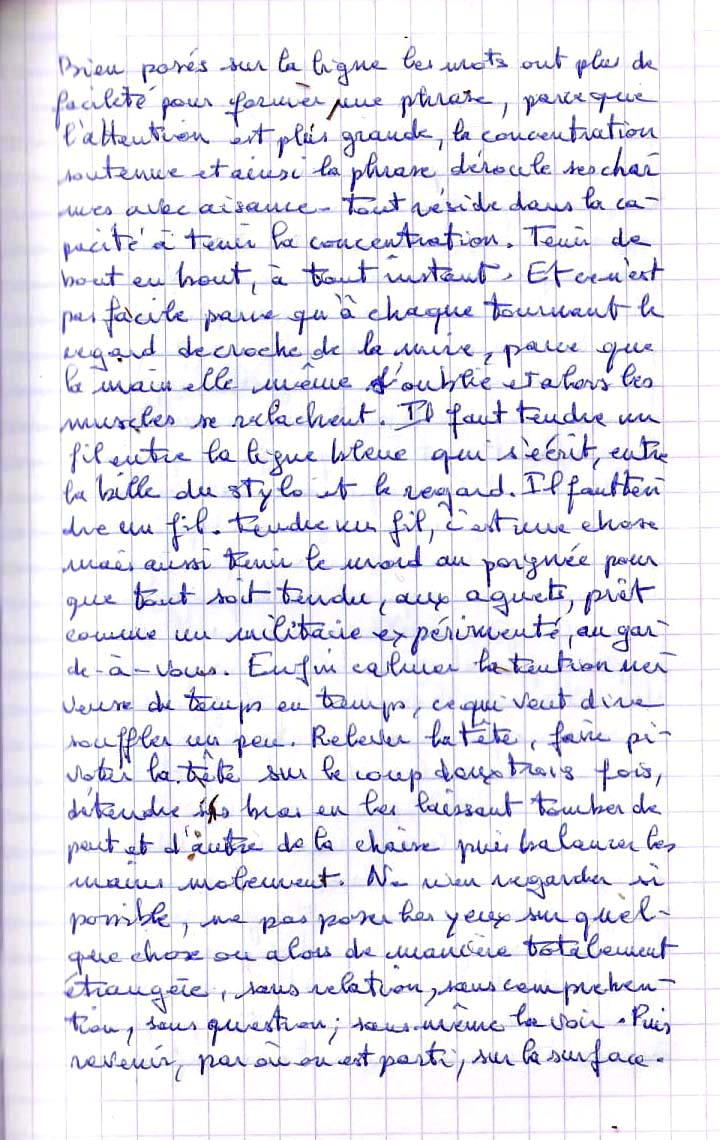 Bien posés sur la ligne les mots ont plus de
facilité pour former une phrase, parce que
l'attention est plus grande, la concentration
soutenue et ainsi la phrase déroule ses char
mes avec aisance. Tout réside dans la ca-
pacité à tenir la concentration. Tenir de
bout en bout, à tout instant. Et ce n'est
pas facile parce qu'à chaque tournant le
regard decroche de la mire, parce que
la main elle même s'oublie et alors les
muscles se relachent. Il faut tendre un
fil entre la ligne bleue qui s'écrit, entre
la bille du stylo et le regard. Il faut ten
dre un fil. Tendre un fil, c'est une chose
mais aussi tenir le mord au poignée pour
que tout soit tendu, aux aguets, prêt
comme un militaire expérimenté, au gar
de-à-vous. Enfin calmer la tention ner
veuse de temps en temps, ce qui veut dire
souffler un peu. Relever la tête, faire pi-
voter la tête sur le coup deux trois fois,
détendre les bras en les laissant tomber de
part et d'autre de la chaise puis balancer les
mains molement. Ne rien regarder si
possible, ne pas poser les yeux sur quel-
que chose ou alors de manière totalement
étrangère, sans relation, sans comprehen-
tion, sans question; sans même la voir. Puis
revenir, par où on est parti, sur la surface.